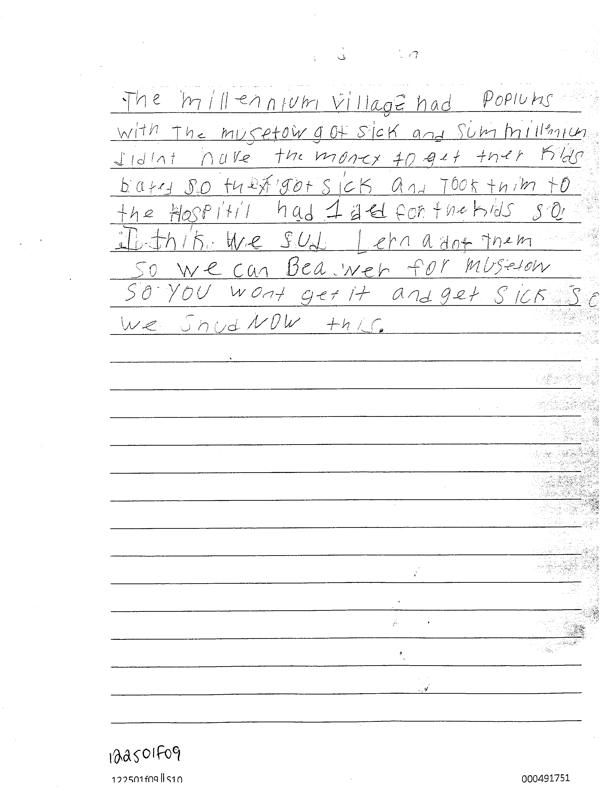 The millennium village had Poplums
with The musetow got sick and sum millenium
didnt have the money to get ther kids
bates so they got sick and Took thim to
the Hospitil had 1 bed for the kids so
I thik we sud Lern adot them
so we can Bea wer for musetow
so you wont get it and get sick so
we shud NOW this.
122501f09
122501f09||S10
000491751